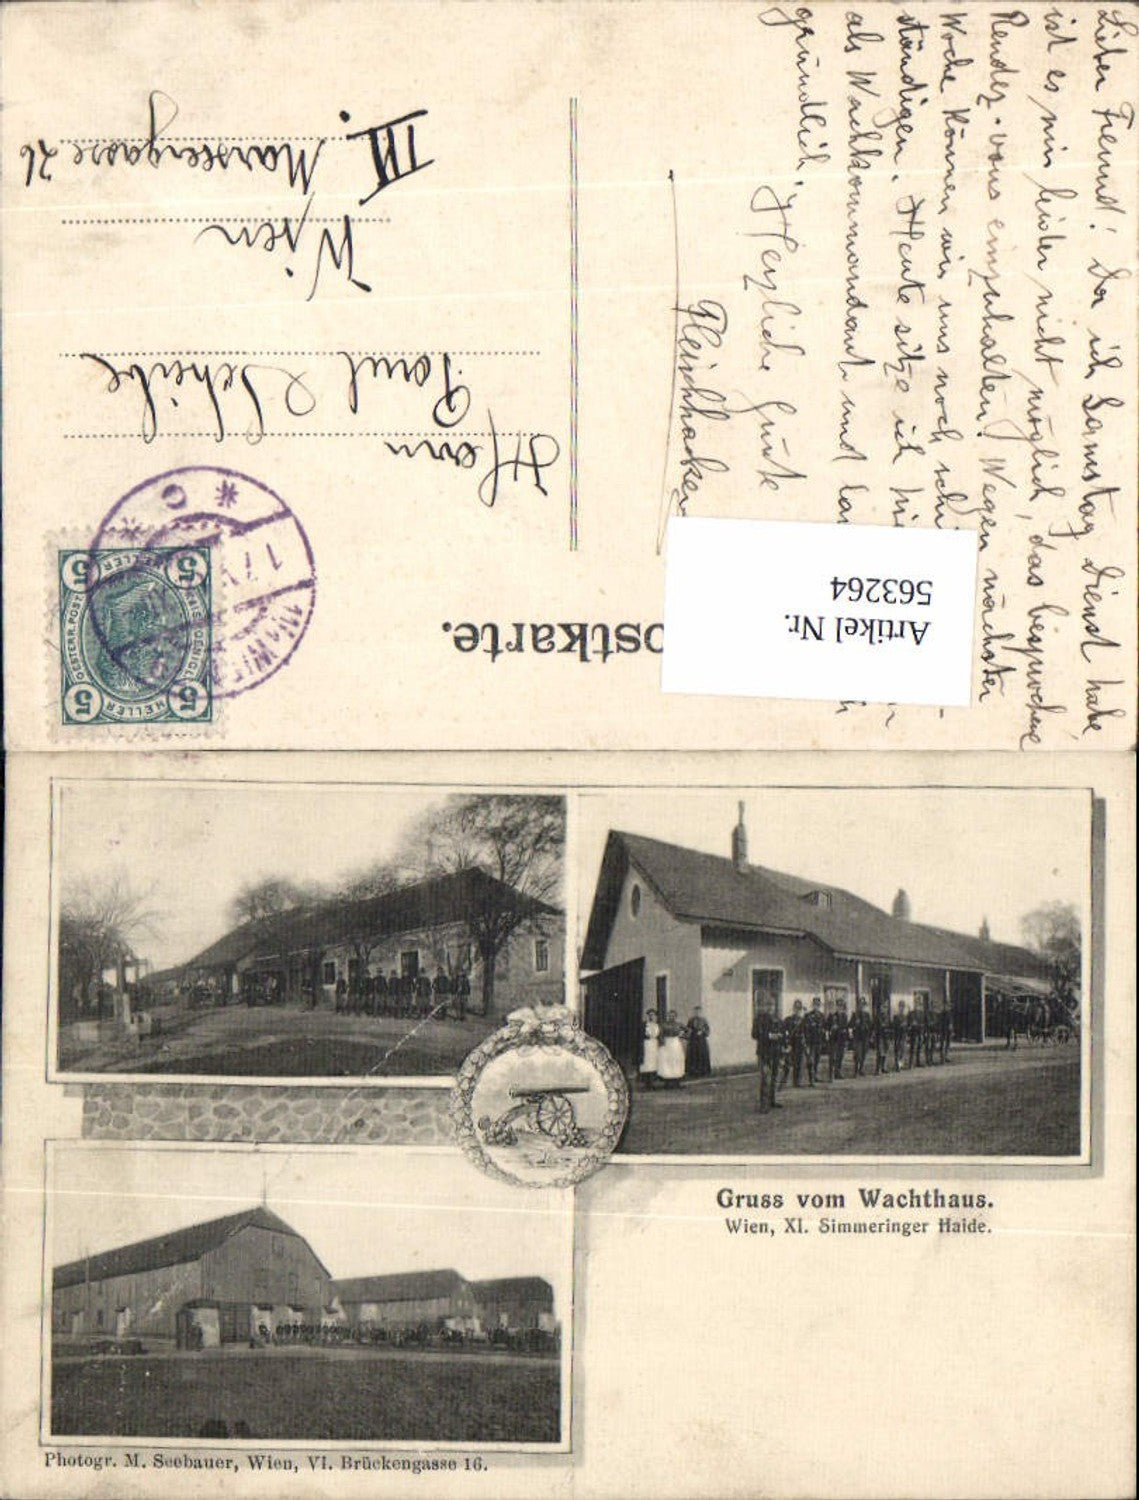 Postkarte.
Artikel Nr.
563264
5 HELLER 5
OESTERR. POST
5 HELLER 5
WIEN
Herrn
Paul Scheibe
Wien
III. Marxergasse 26
Lieber Freund! Da ich Samstag Dienst habe,
ist es mir leider nicht möglich, das besprochene
Rendez-vous einzuhalten. Wegen nächster
Woche können wir uns noch
ständigen. Heute sitze ich
als Wachkommandant und
gründlich. Herzliche Grüße
Fleischhacker
Gruss vom Wachthaus.
Wien, XI. Simmeringer Haide.
Photogr. M. Seebauer, Wien, VI. Brückengasse 16.